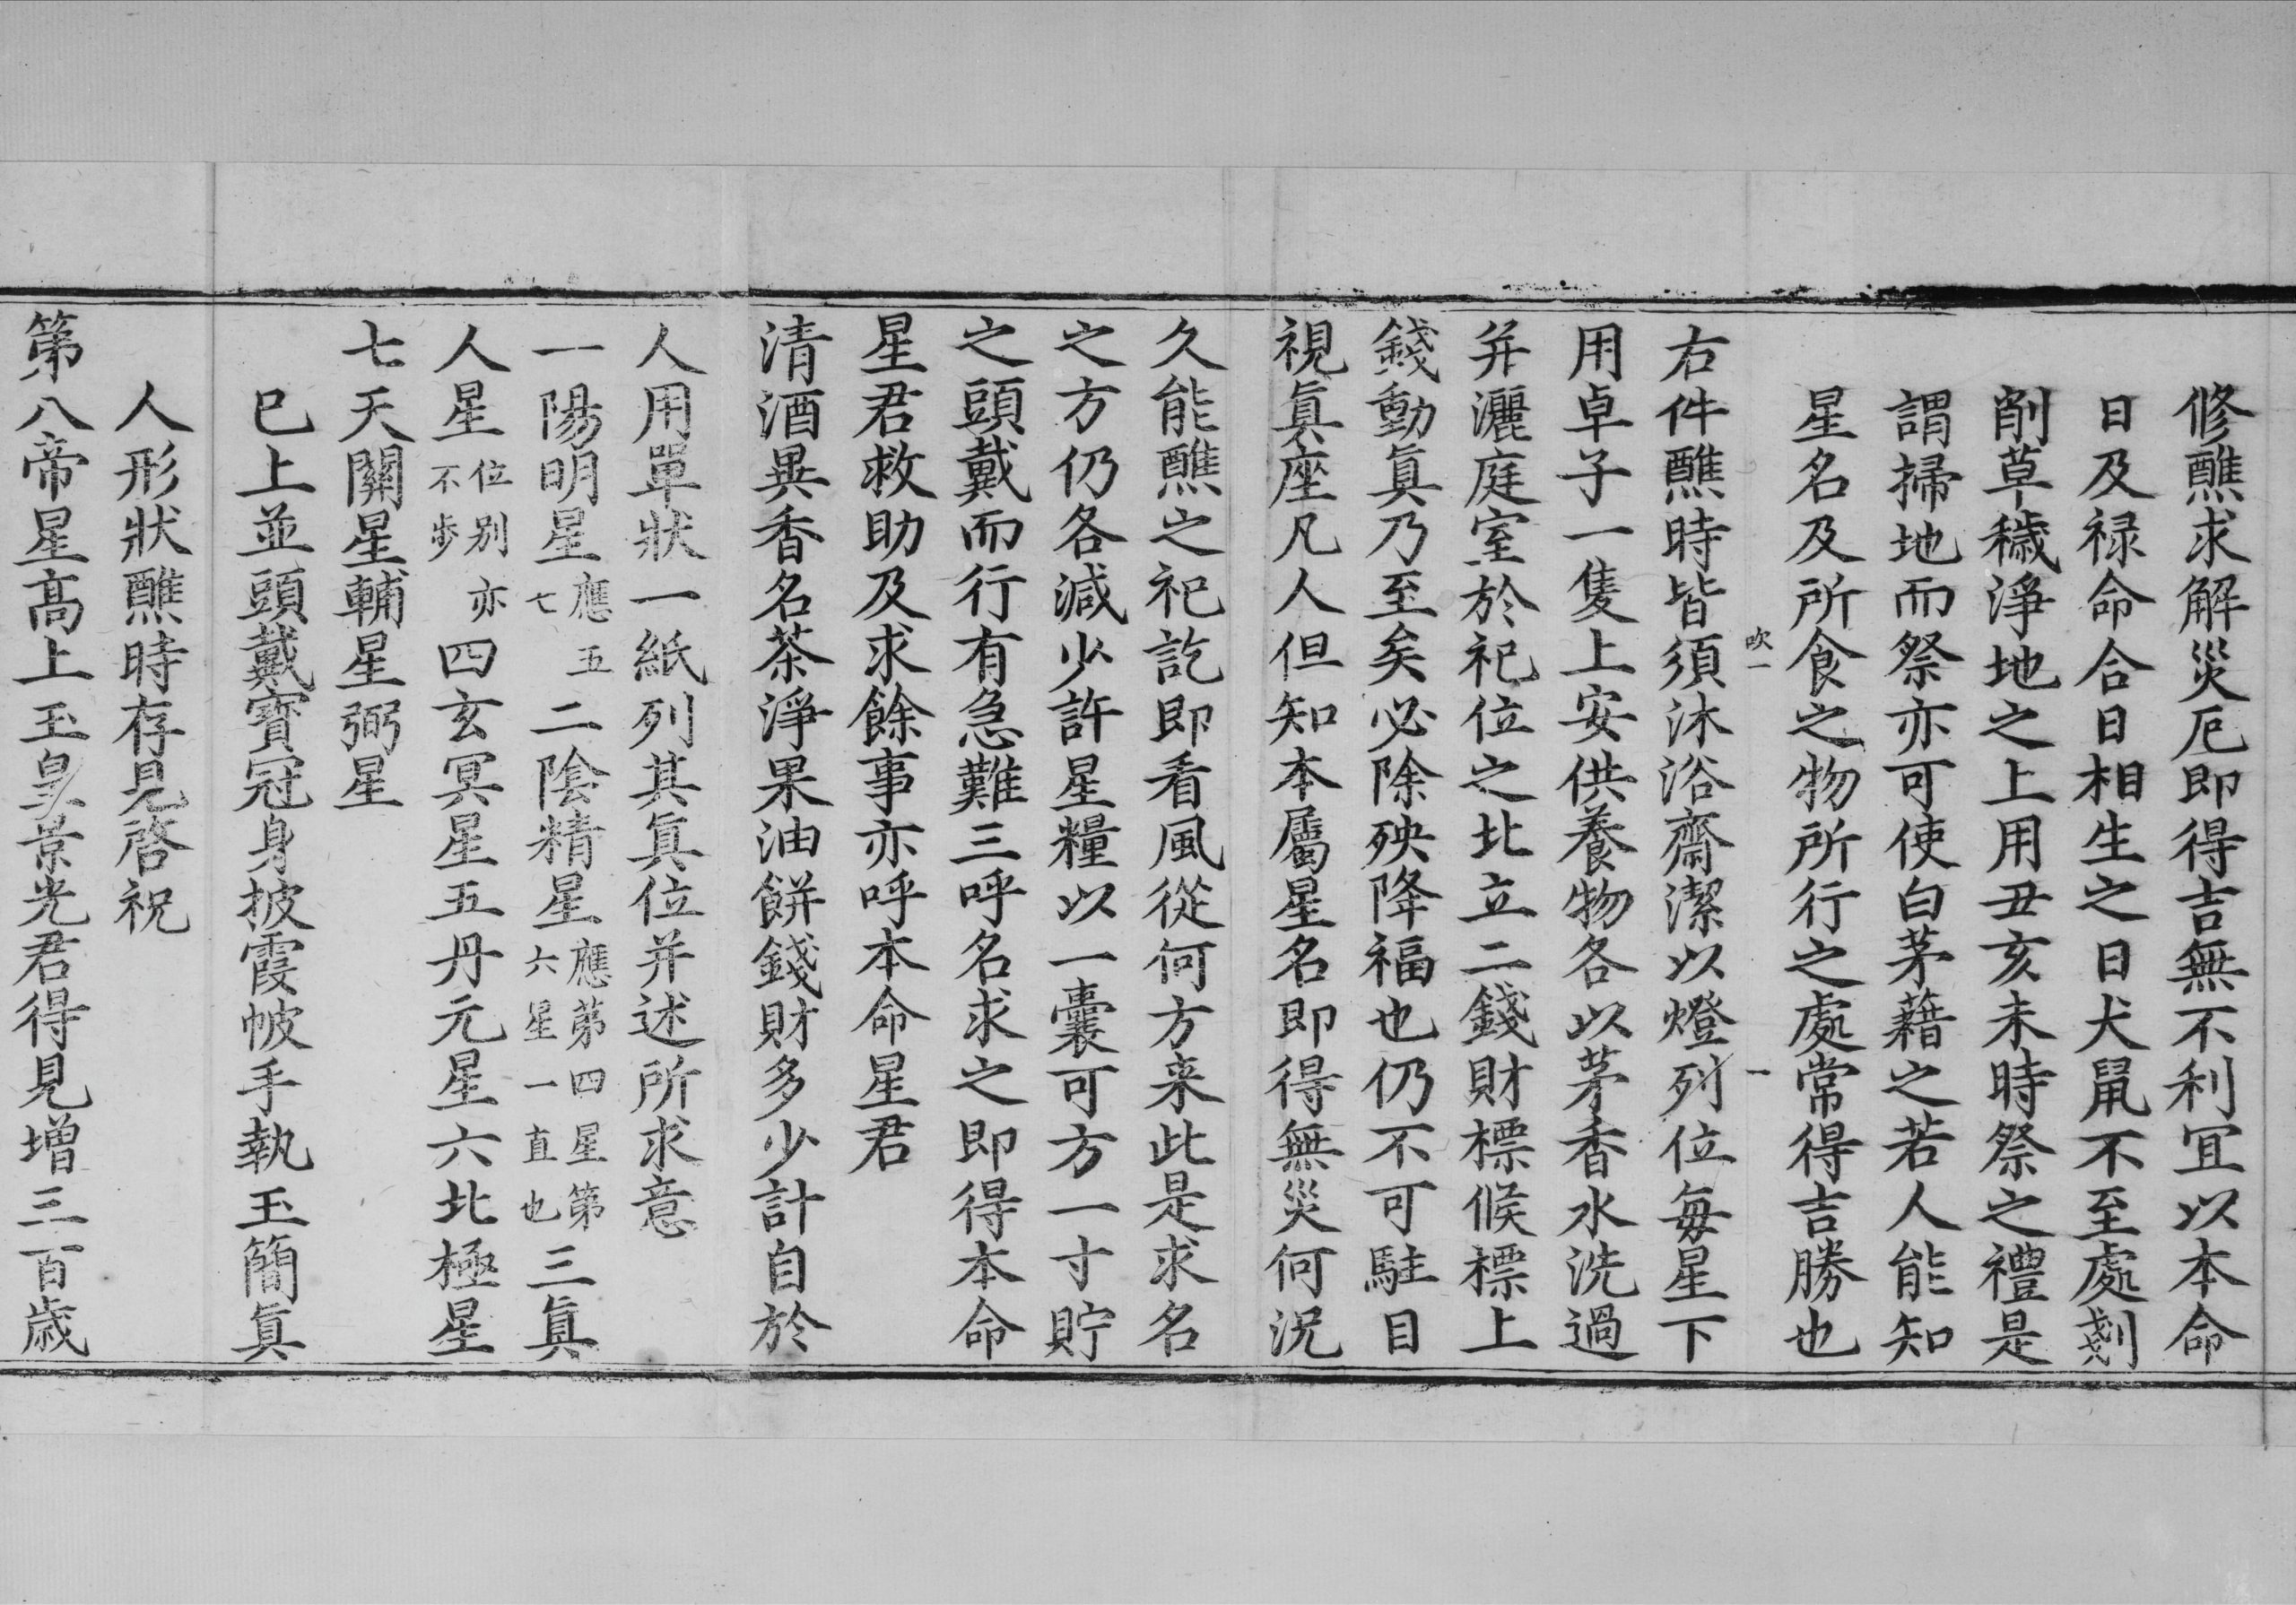 修醮求解災厄即得吉無不利宜以本命
日及禄命合日相生之日犬鼠不至處剗
削草穢淨地之上用丑亥未時祭之禮是
謂掃地而祭亦可使白茅藉之若人能知
星名及所食之物所行之處常得吉勝也
吹一 一
右件醮時皆須沐浴齋潔以燈列位每星下
用卓子一隻上安供養物各以茅香水洗過
并灑庭室於祀位之北立二錢財標候標上
錢動眞乃至矣必除殃降福也仍不可駐目
視眞座凡人但知本屬星名即得無災何況
久能醮之祀訖即看風從何方来此是求名
之方仍各減少許星糧以一囊可方一寸貯
之頭戴而行有急難三呼名求之即得本命
星君救助及求餘事亦呼本命星君
清酒異香名茶淨果油餅錢財多少計自於
人用單狀一紙列其眞位并述所求意
一陽明星應五七二陰精星應第四星第六星一直也三眞
人星位别亦不歩四玄冥星五丹元星六北極星
七天關星輔星弼星
巳上並頭戴寳冠身披霞帔手執玉簡眞
人形狀醮時存見啓祝
第八帝星高上玉皇景光君得見增三百歳